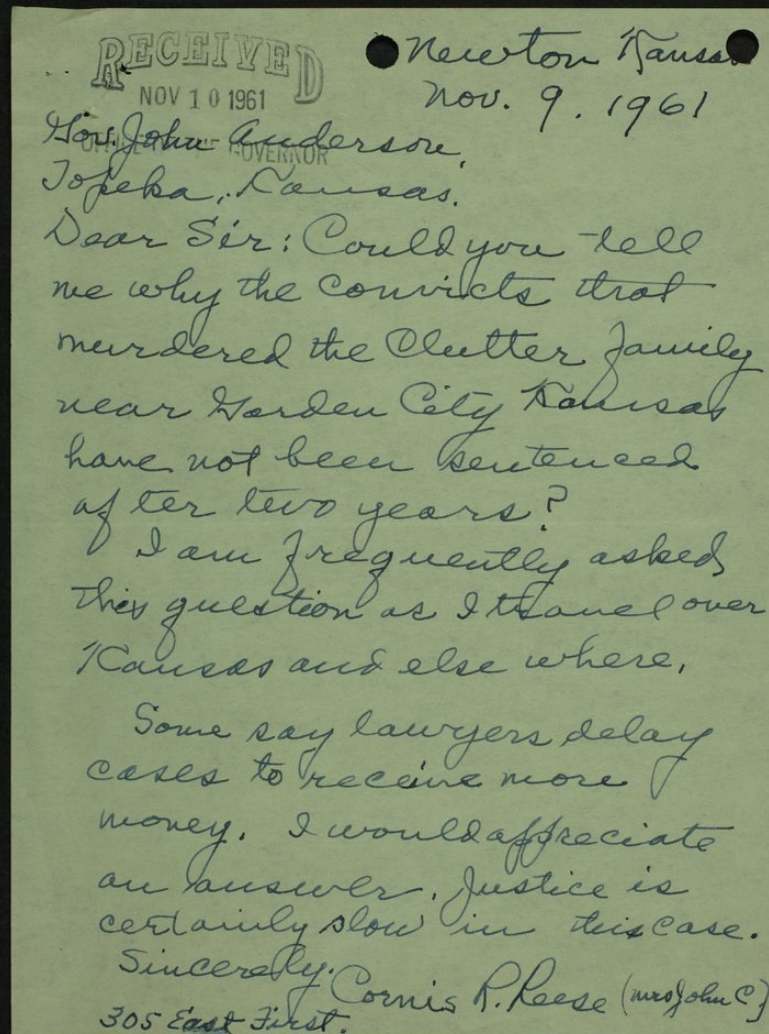 RECEIVED
NOV 10 1961
OFFICE OF THE GOVERNOR
Newton Kansas
Nov. 9. 1961
Gov. John Anderson,
Topeka, Kansas.
Dear Sir: Could you tell
me why the convicts that
murdered the Clutter family
near Garden City Kansas
have not been sentenced
after two years?
I am frequently asked
this question as I travel over
Kansas and else where.
Some say lawyers delay
cases to receive more
money. I would appreciate
an answer. Justice is
certainly slow in this case.
Sincerely.
Cornis R. Reese (Mrs John C)
305 East First.